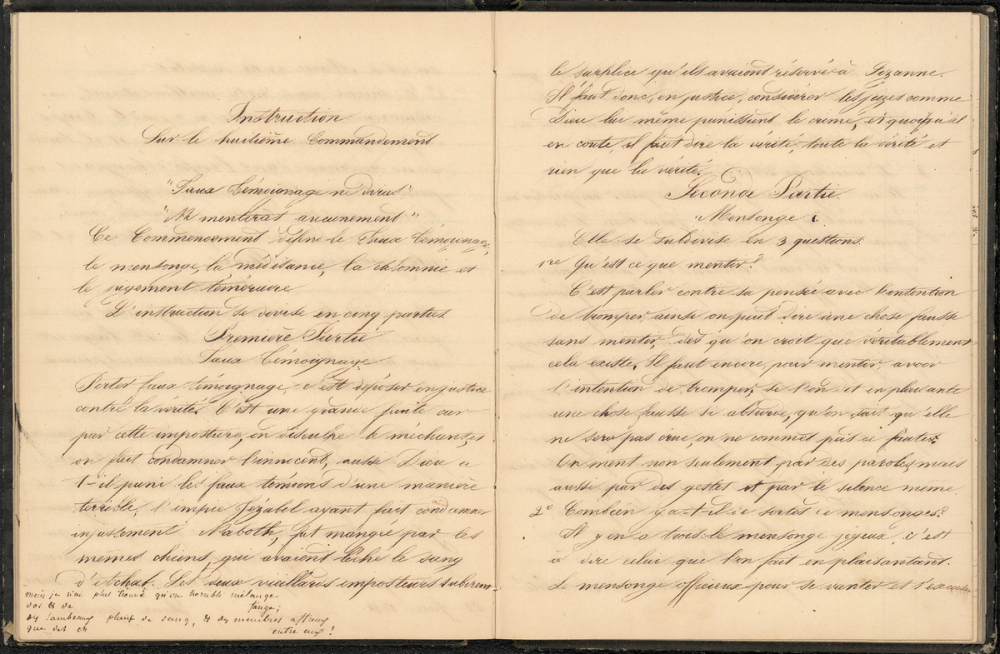 Instruction
Sur le huitième Commandement
"Faux témoignage ne diras"
"Ni mentiras aucunement"
Ce Commencement défend le Faux témoignage,
le mensonge, la médisance, la calomnie et
le jugement téméraire
L'instruction se divise en cinq parties
Première Partie
Faux témoignage
Porter faux témoignage, c'est déposer en justice
contre la vérité. C'est une grande faute car
par cette imposture, on disculpe le méchant, et
on fait condamner l'innocent, aussi Dieu a
t-il puni les faux témoins d'une manière
terrible, l'impie Jézabel ayant fait condamner
injustement Naboth, fut mangée par les
mêmes chiens, qui avaient léché le sang
d'Achab. Les deux vieillards imposteurs subirent
mais je n'ai plus trouvé qu'un horrible mélange
d'os & de fange;
des lambeaux pleins de sang, & des membres affreux
que des ch entre eux!
le supplice qu'ils avaient réservé à Suzanne.
Il faut donc, en justice, considérer les juges comme
Dieu lui même punissant le crime, et quoiqu'il
en coute, il faut dire la vérité, toute la vérité et
rien que la vérité.
Seconde Partie
Mensonge
Elle se subdivise en 3 questions.
1re Qu'est ce que mentir?
C'est parler contre sa pensée avec l'intention
de tromper, ainsi on peut dire une chose fausse
sans mentir, dès qu'on croit que véritablement
cela existe. Il faut encore, pour mentir, avoir
l'intention de tromper, si l'on dit en plaisante
une chose fausse si absurde, qu'on sait qu'elle
ne sera pas crue, on ne commet pas de faute.
On ment non seulement par des paroles, mais
aussi par des gestes et par le silence même
2º Combien y a-t-il de sortes de mensonges?
Il y en a trois le mensonge joyeux, c'est
à dire celui que l'on fait en plaisantant.
Le mensonge officieux pour se vanter et s'excuser